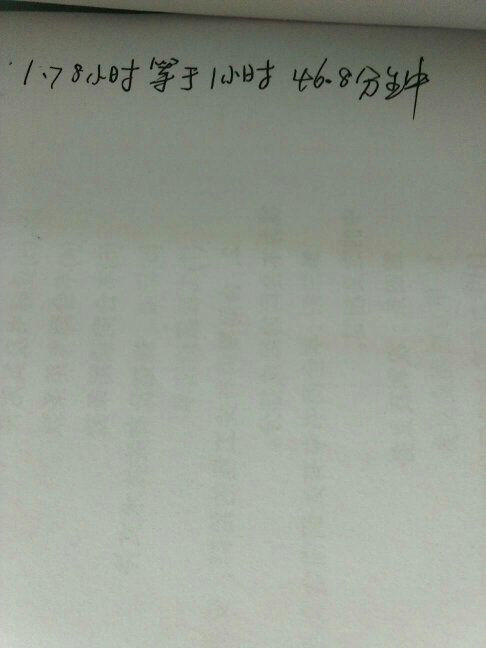 1.78小时等于1小时 46.8分钟